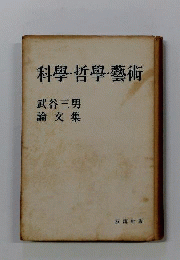 科學・哲學・藝術
武谷三男
論文集